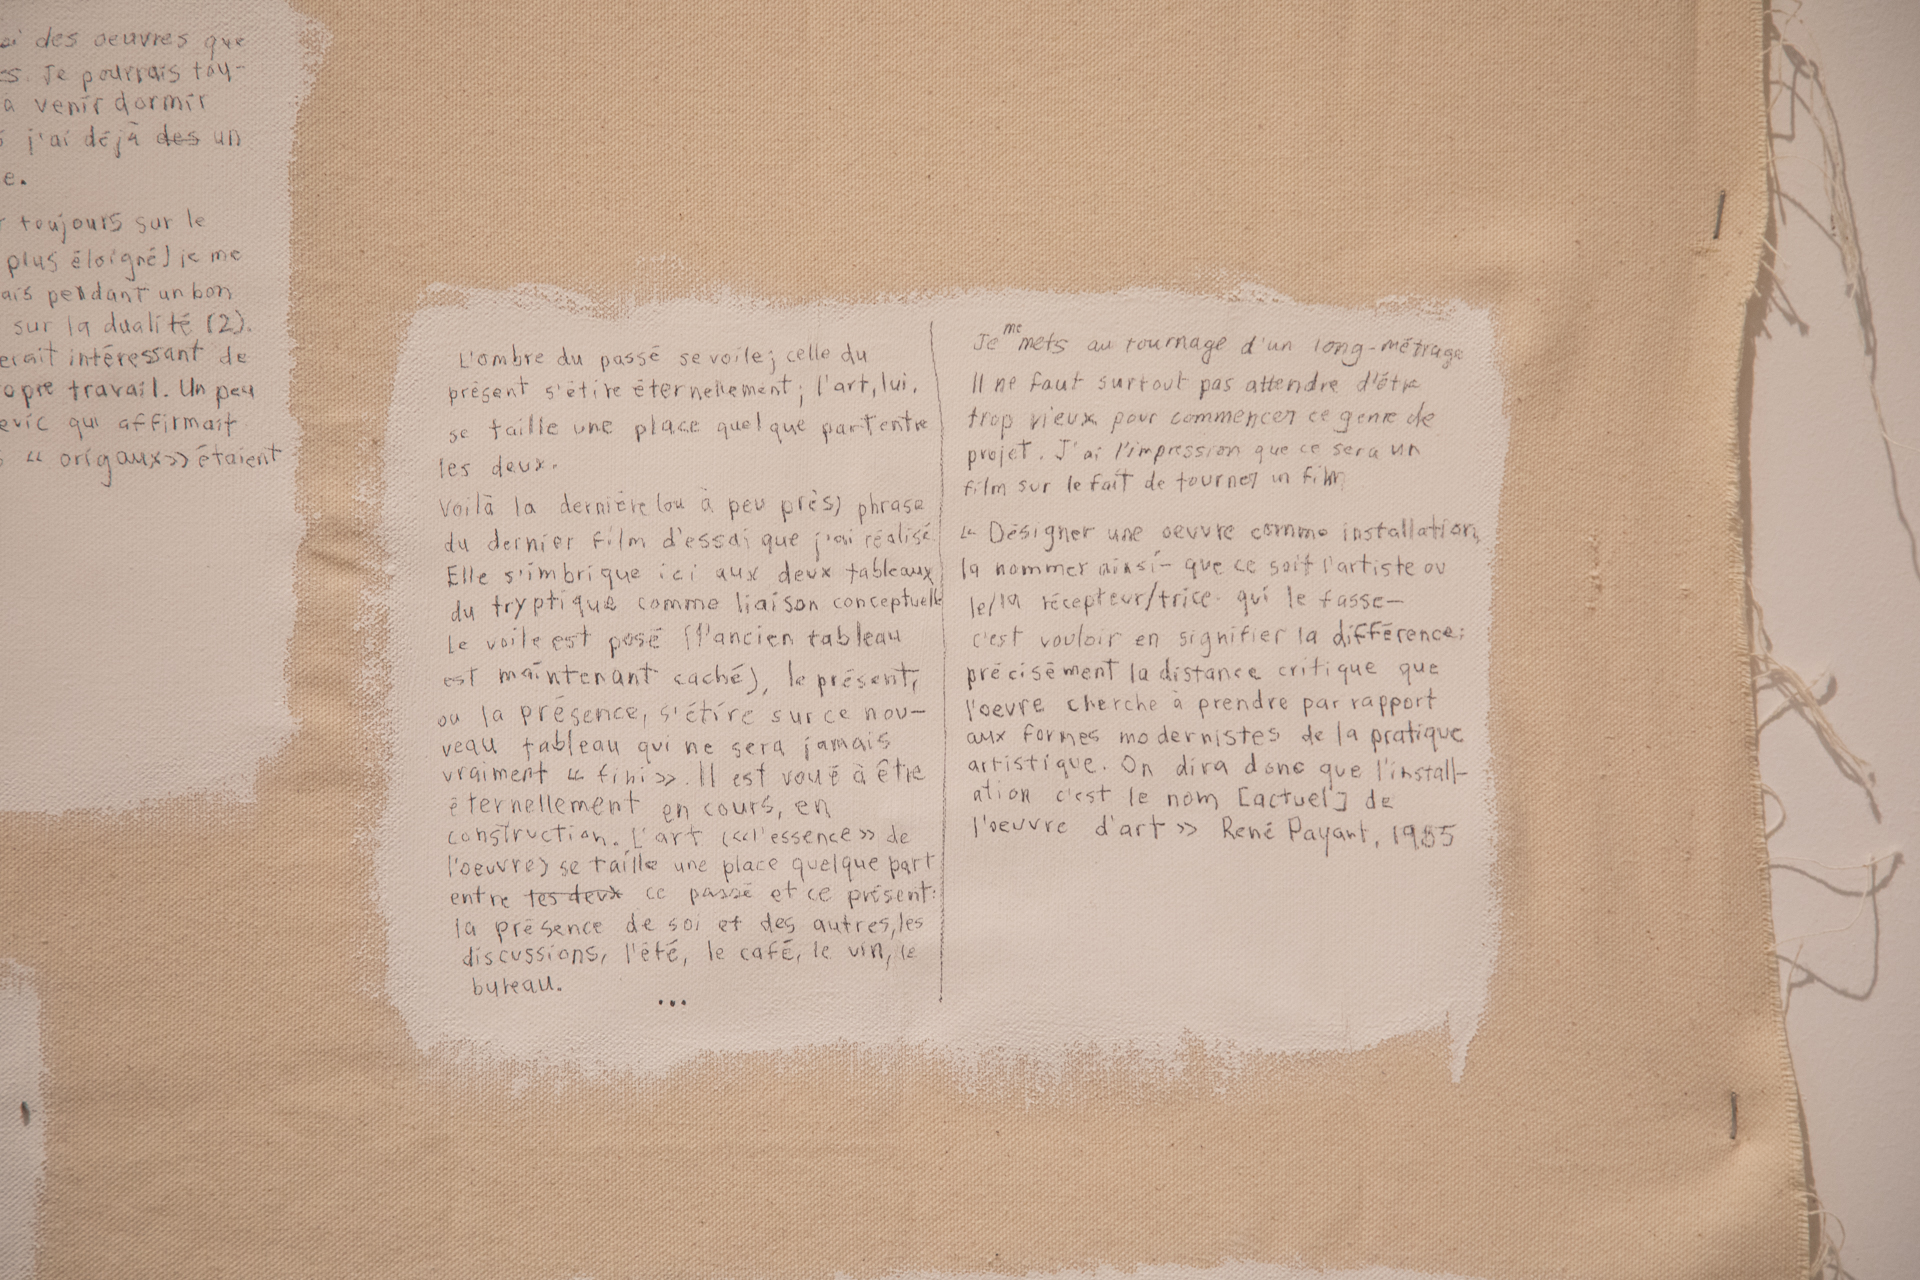 des oeuvres que
Je pourrais tou-
a venir dormir
j'ai déjà des un
e.
toujours sur le
plus éloigné) je me
ais pendant un bon
sur la dualité (2).
erait intéressant de
opre travail. Un peu
evic qui affirmait
« origaux» étaient
L'ombre du passé se voile; celle du
présent s'étire éternellement; l'art, lui,
se taille une place quelque part entre
les deux.
Voilà la dernière (ou à peu près) phrase
du dernier film d'essai que j'ai réalisé.
Elle s'imbrique ici aux deux tableaux
du tryptique comme liaison conceptuelle
Le voile est posé (l'ancien tableau
est maintenant caché), le présent,
ou la présence, s'étire sur ce nou-
veau tableau qui ne sera jamais
vraiment « fini ». Il est voué à être
éternellement en cours, en
construction. L'art («l'essence» de
l'oeuvre) se taille une place quelque part
entre les deux ce passé et ce présent:
la présence de soi et des autres, les
discussions, l'été, le café, le vin, le
bureau.
...
Je me mets au tournage d'un long-métrage
Il ne faut surtout pas attendre d'être
trop vieux pour commencer ce genre de
projet. J'ai l'impression que ce sera un
film sur le fait de tourner un film
« Désigner une oeuvre comme installation,
la nommer ainsi - que ce soit l'artiste ou
le/la récepteur/trice qui le fasse—
c'est vouloir en signifier la différence:
précisément la distance critique que
l'oevre cherche à prendre par rapport
aux formes modernistes de la pratique
artistique. On dira donc que l'install-
ation c'est le nom [actuel] de
l'oeuvre d'art » René Payant, 1985